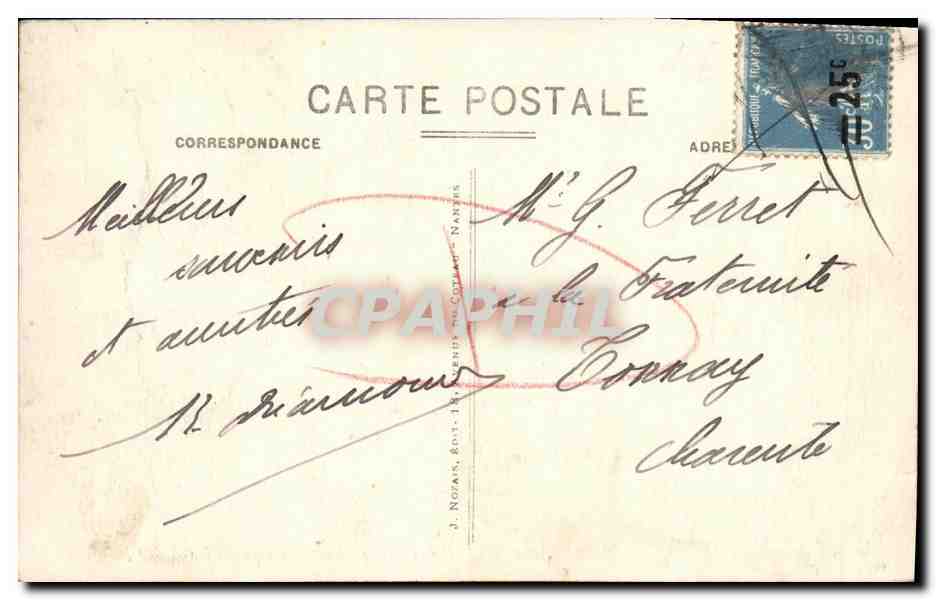 CARTE POSTALE
CORRESPONDANCE
ADRE
POSTES
25c
Meilleurs
souvenirs
et amitiés
Mr. G. Ferret
à la Fraternité
Tonnay
Charente
J. NOZAIS, ÉDIT. - 18, AVENUE DU COTEAU - NANTES
CPAPHIL